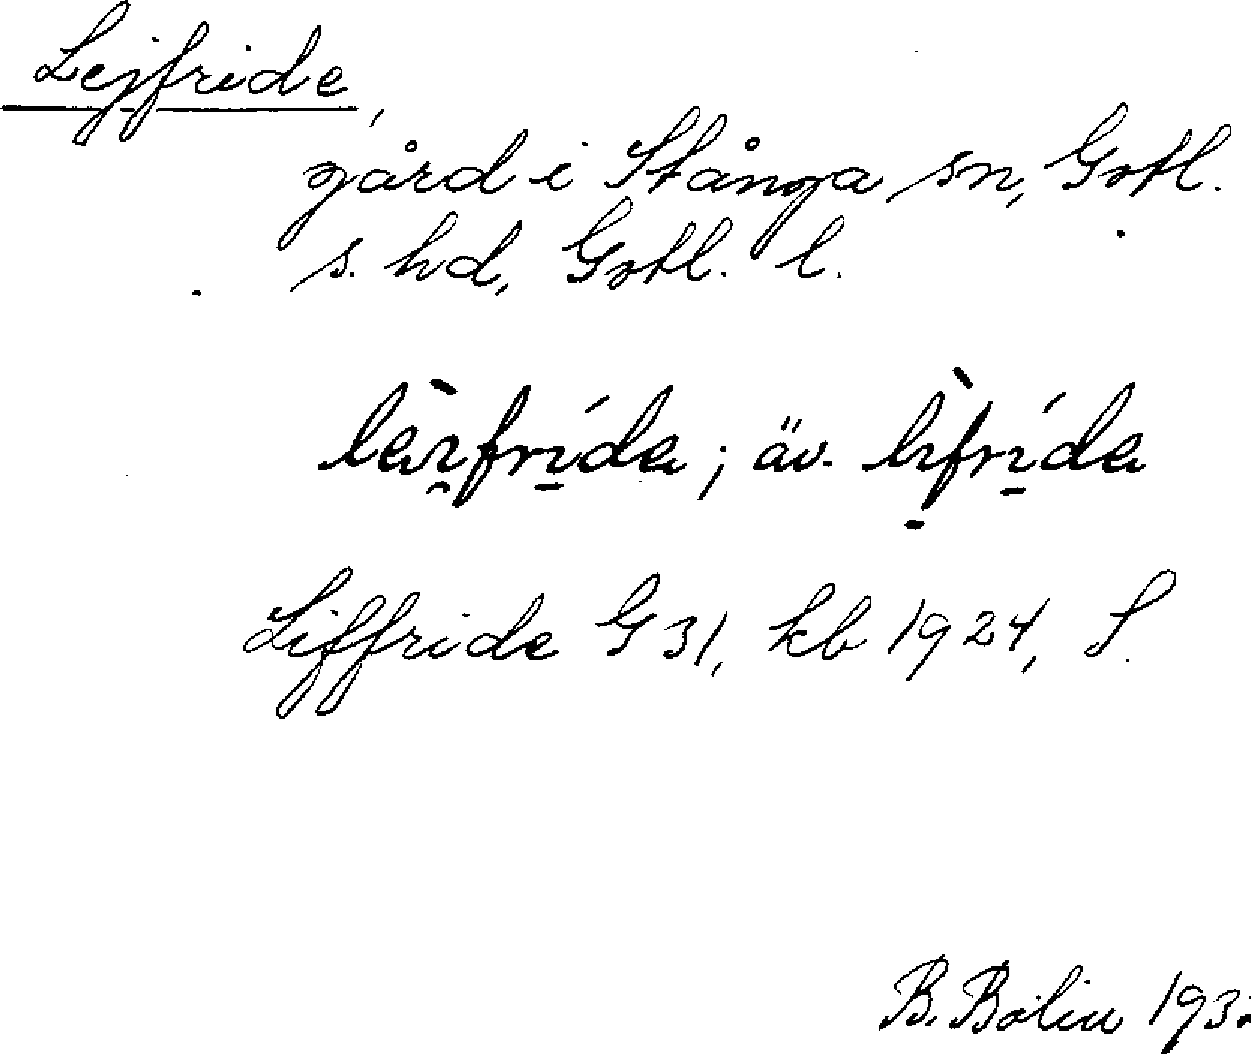 Lejfride,
gård i Stånga sn, Gotl.
s. hd, Gotl. l.
läɪfrída; äv. lɪfrída
Liffride G 31, kb 1924, S.
B. Bolin 193